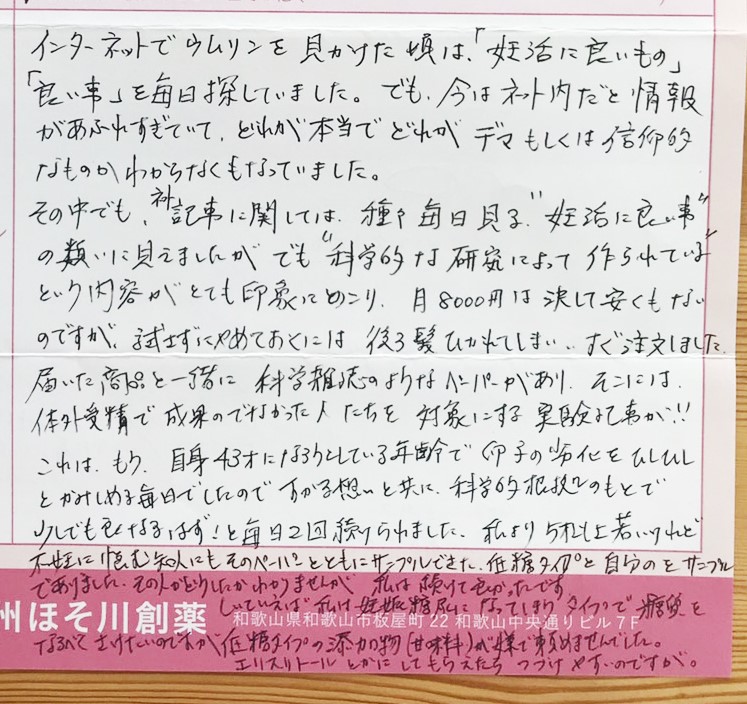 インターネットでウムリンを見かけた頃は、「妊活に良いもの」
「良い事」を毎日探していました。でも、今はネット内だと情報
があふれすぎていて、どれが本当でどれがデマもしくは信仰的
なものかわからなくもなっていました。
その中でも、記事に関しては、種々毎日見る"妊活に良い事"
の類いに見えましたがでも"科学的な研究によって作られている"
という内容がとても印象にのこり、月8000円は決して安くもない
のですが、試さずにやめておくには後ろ髪ひかれてしまい、すぐ注文しました。
届いた商品と一緒に科学雑誌のようなペーパーがあり、そこには、
体外受精で成果のでなかった人たちを対象にする実験記事が!!
これは、もう、自身43才になろうとしている年齢で卵子の劣化をひしひし
とかみしめる毎日でしたのですがる想いと共に、科学的根拠のもとで
少しでも良くなるはず!と毎日2回続けられました。私より5才以上若いけれど
不妊に悩む知人にもそのペーパーとともにサンプルできた、低糖タイプと自分のをサンプル
でありました。その人がどうしたかわかりませんが 私は続けて良かったです
しいていえば私は妊娠糖尿になってしまうタイプで糖質を
州ほそ川創薬 和歌山県和歌山市板屋町22 和歌山中央通りビル7F
なるべくさけたいのですが低糖タイプの添加物(甘味料)が嫌で頼めませんでした。
エリスリトールとかにしてもらえたらつづけやすいのですが。